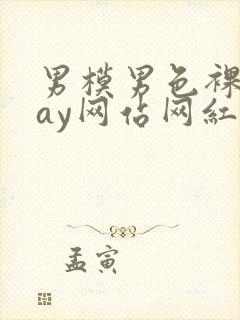 男模男色裸
ay网估网紅
孟寅